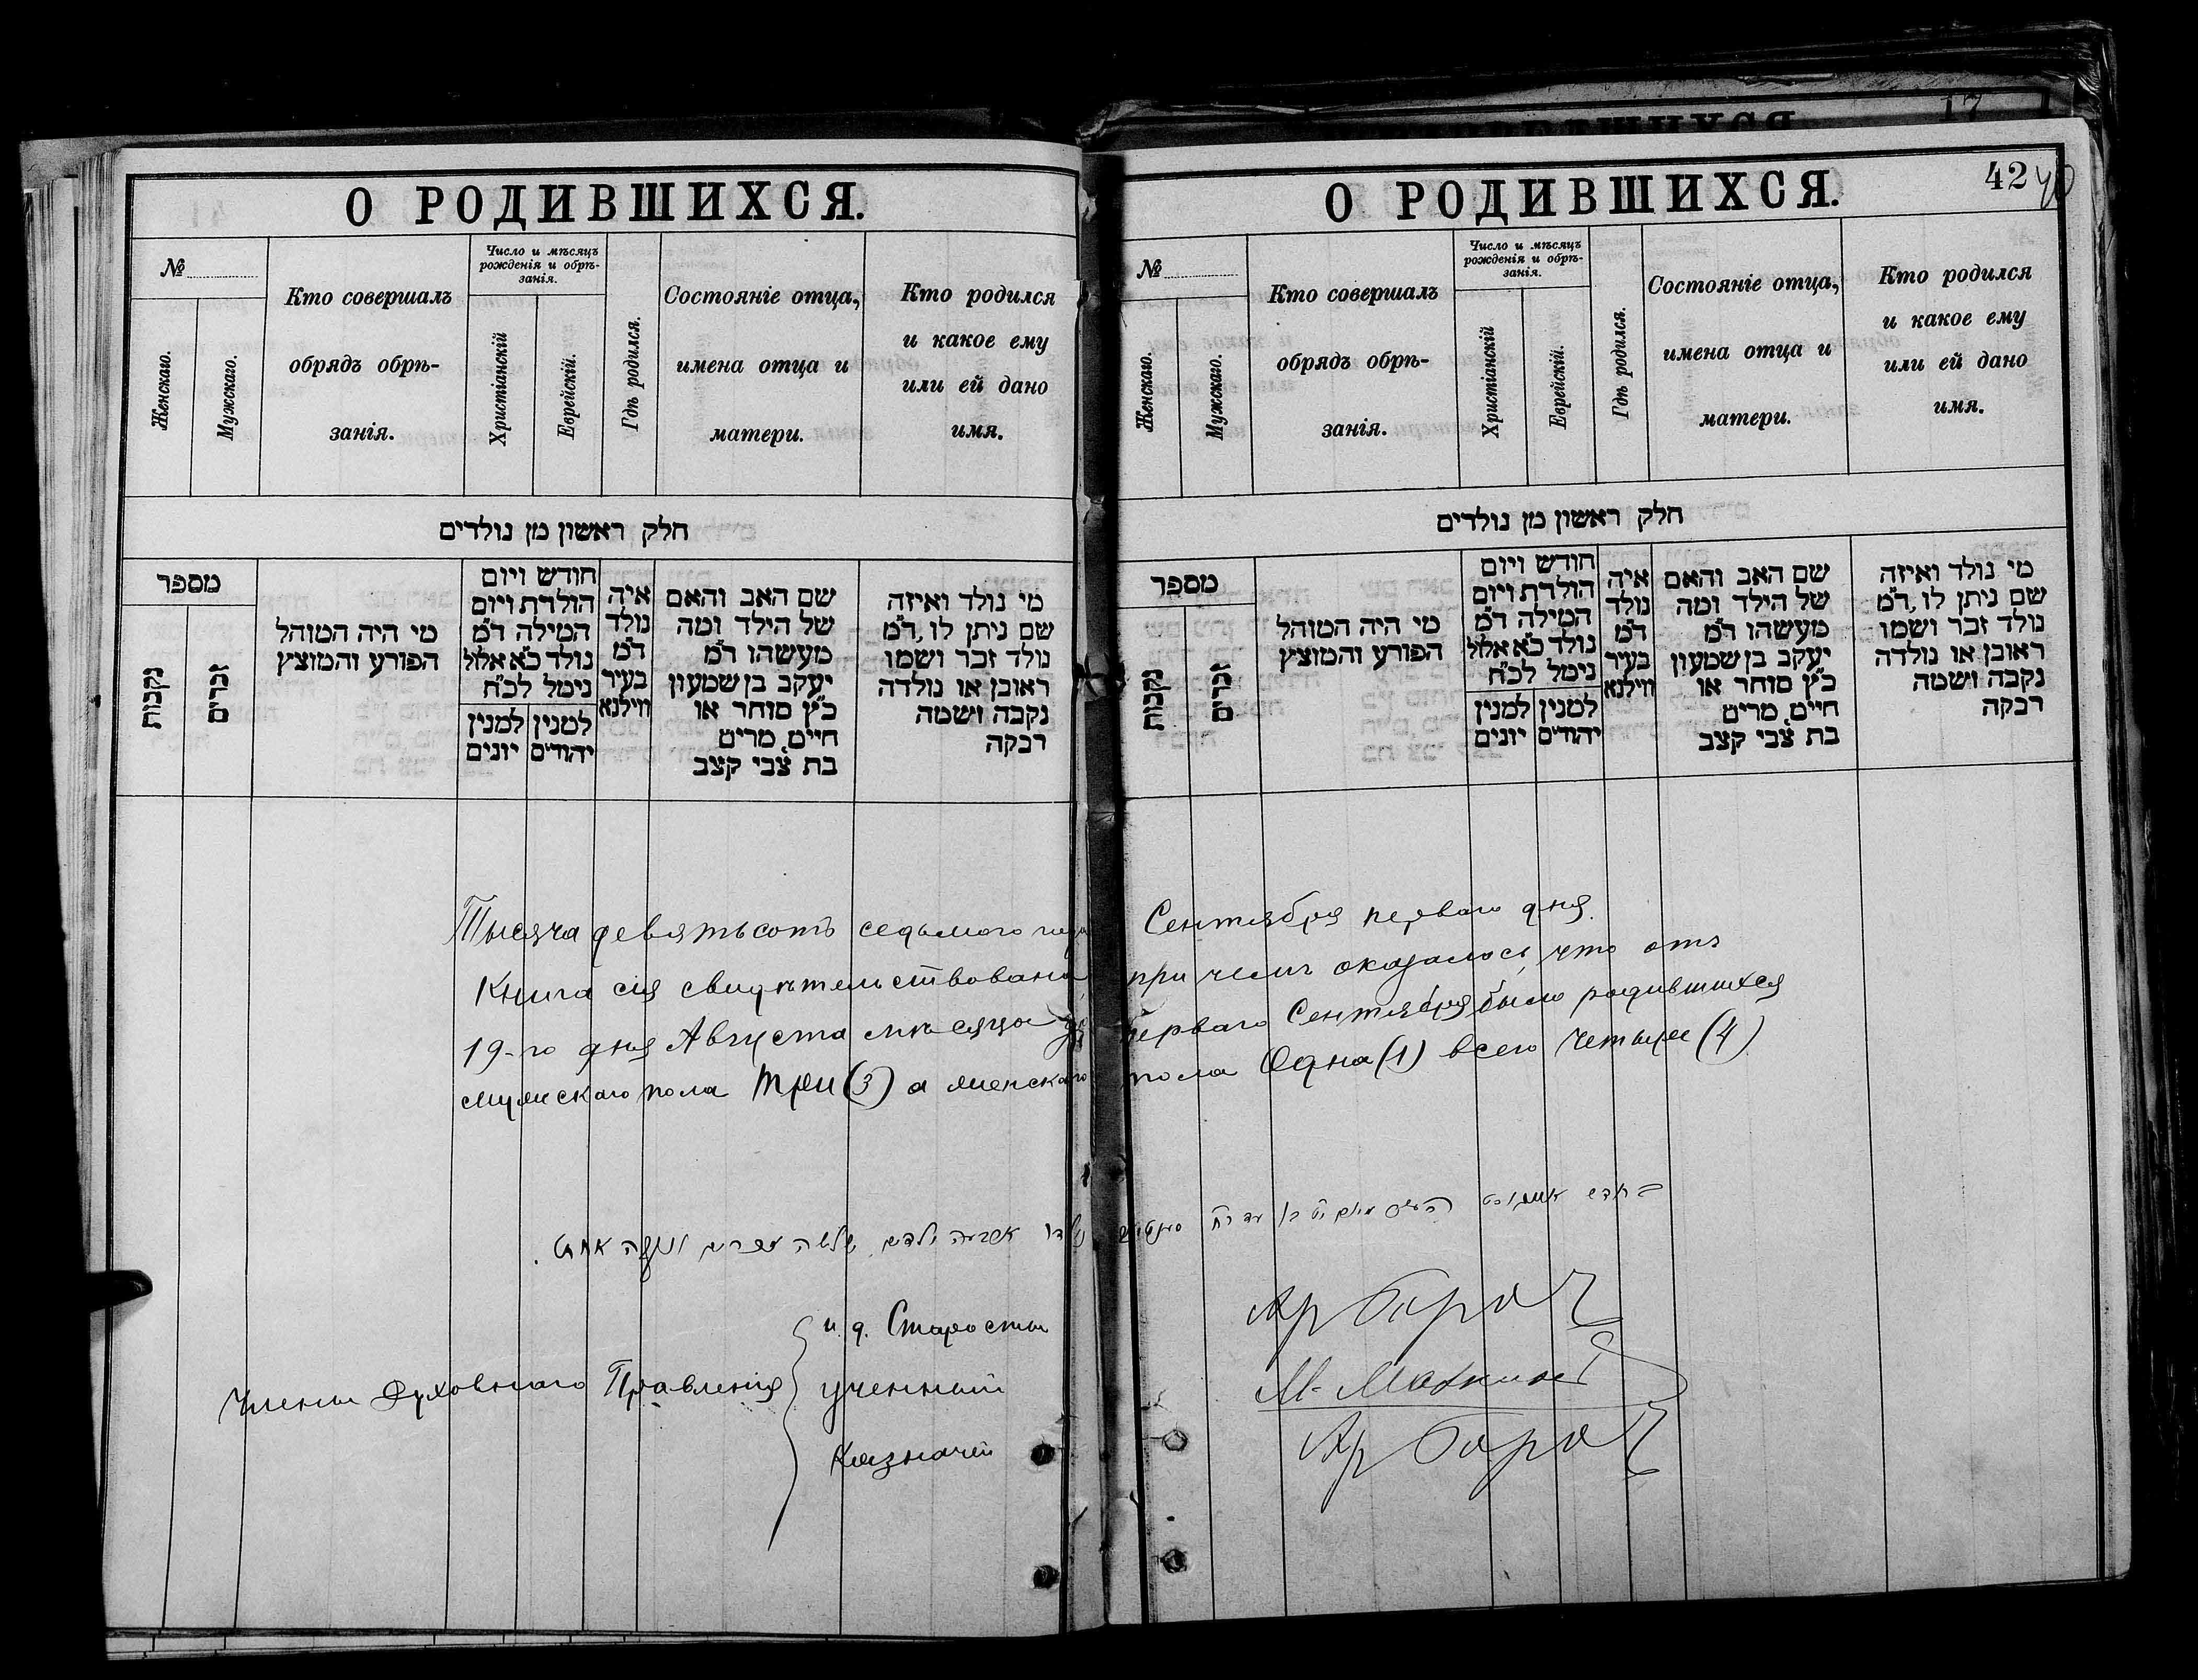 О РОДИВШИХСЯ.
№
Женскаго.
Мужскаго.
Кто совершалъ
обрядъ обрѣ-
занія.
Число и мѣсяцъ
рожденія и обрѣ-
занія.
Христіанскій
Еврейскій.
Гдѣ родился.
Состояніе отца,
имена отца и
матери.
Кто родился
и какое ему
или ей дано
имя.
חלק ראשון מן נולדים
מספר
נקבות
זכרים
מי היה המוהל
הפורע והמוצץ
חודש ויום
הולדת ויום
המילה ד"מ
נולד כ"א אלול
נימל לכ"ח
למנין יונים
למנין יהודים
איה
נולד
ד"מ
בעיר
ווילנא
שם האב והאם
של הילד ומה
מעשהו ד"מ
יעקב בן שמעון
כ"ץ סוחר או
חייט, מרים
בת צבי קצב
מי נולד ואיזה
שם ניתן לו, ד"מ
נולד זכר ושמו
ראובן או נולדה
נקבה ושמה
רבקה
О РОДИВШИХСЯ.
42 40
17
№
Женскаго.
Мужскаго.
Кто совершалъ
обрядъ обрѣ-
занія.
Число и мѣсяцъ
рожденія и обрѣ-
занія.
Христіанскій
Еврейскій.
Гдѣ родился.
Состояніе отца,
имена отца и
матери.
Кто родился
и какое ему
или ей дано
имя.
חלק ראשון מן נולדים
מספר
נקבות
זכרים
מי היה המוהל
הפורע והמוצץ
חודש ויום
הולדת ויום
המילה ד"מ
נולד כ"א אלול
נימל לכ"ח
למנין יונים
למנין יהודים
איה
נולד
ד"מ
בעיר
ווילנא
שם האב והאם
של הילד ומה
מעשהו ד"מ
יעקב בן שמעון
כ"ץ סוחר או
חייט, מרים
בת צבי קצב
מי נולד ואיזה
שם ניתן לו, ד"מ
נולד זכר ושמו
ראובן או נולדה
נקבה ושמה
רבקה
Тысяча девятьсотъ седьмого года Сентября перваго дня.
Книга сія свидѣтельствована при чемъ оказалось, что отъ
19-го дня Августа мѣсяца до перваго Сентября было родившихся
мужскаго пола три (3) а женскаго пола одна (1) всего четыре (4)
נולדו ארבעה ילדים, שלשה זכרים ונקבה אחת.
Члены Духовнаго Правленія
и. д. Старосты
ученный
Казначей